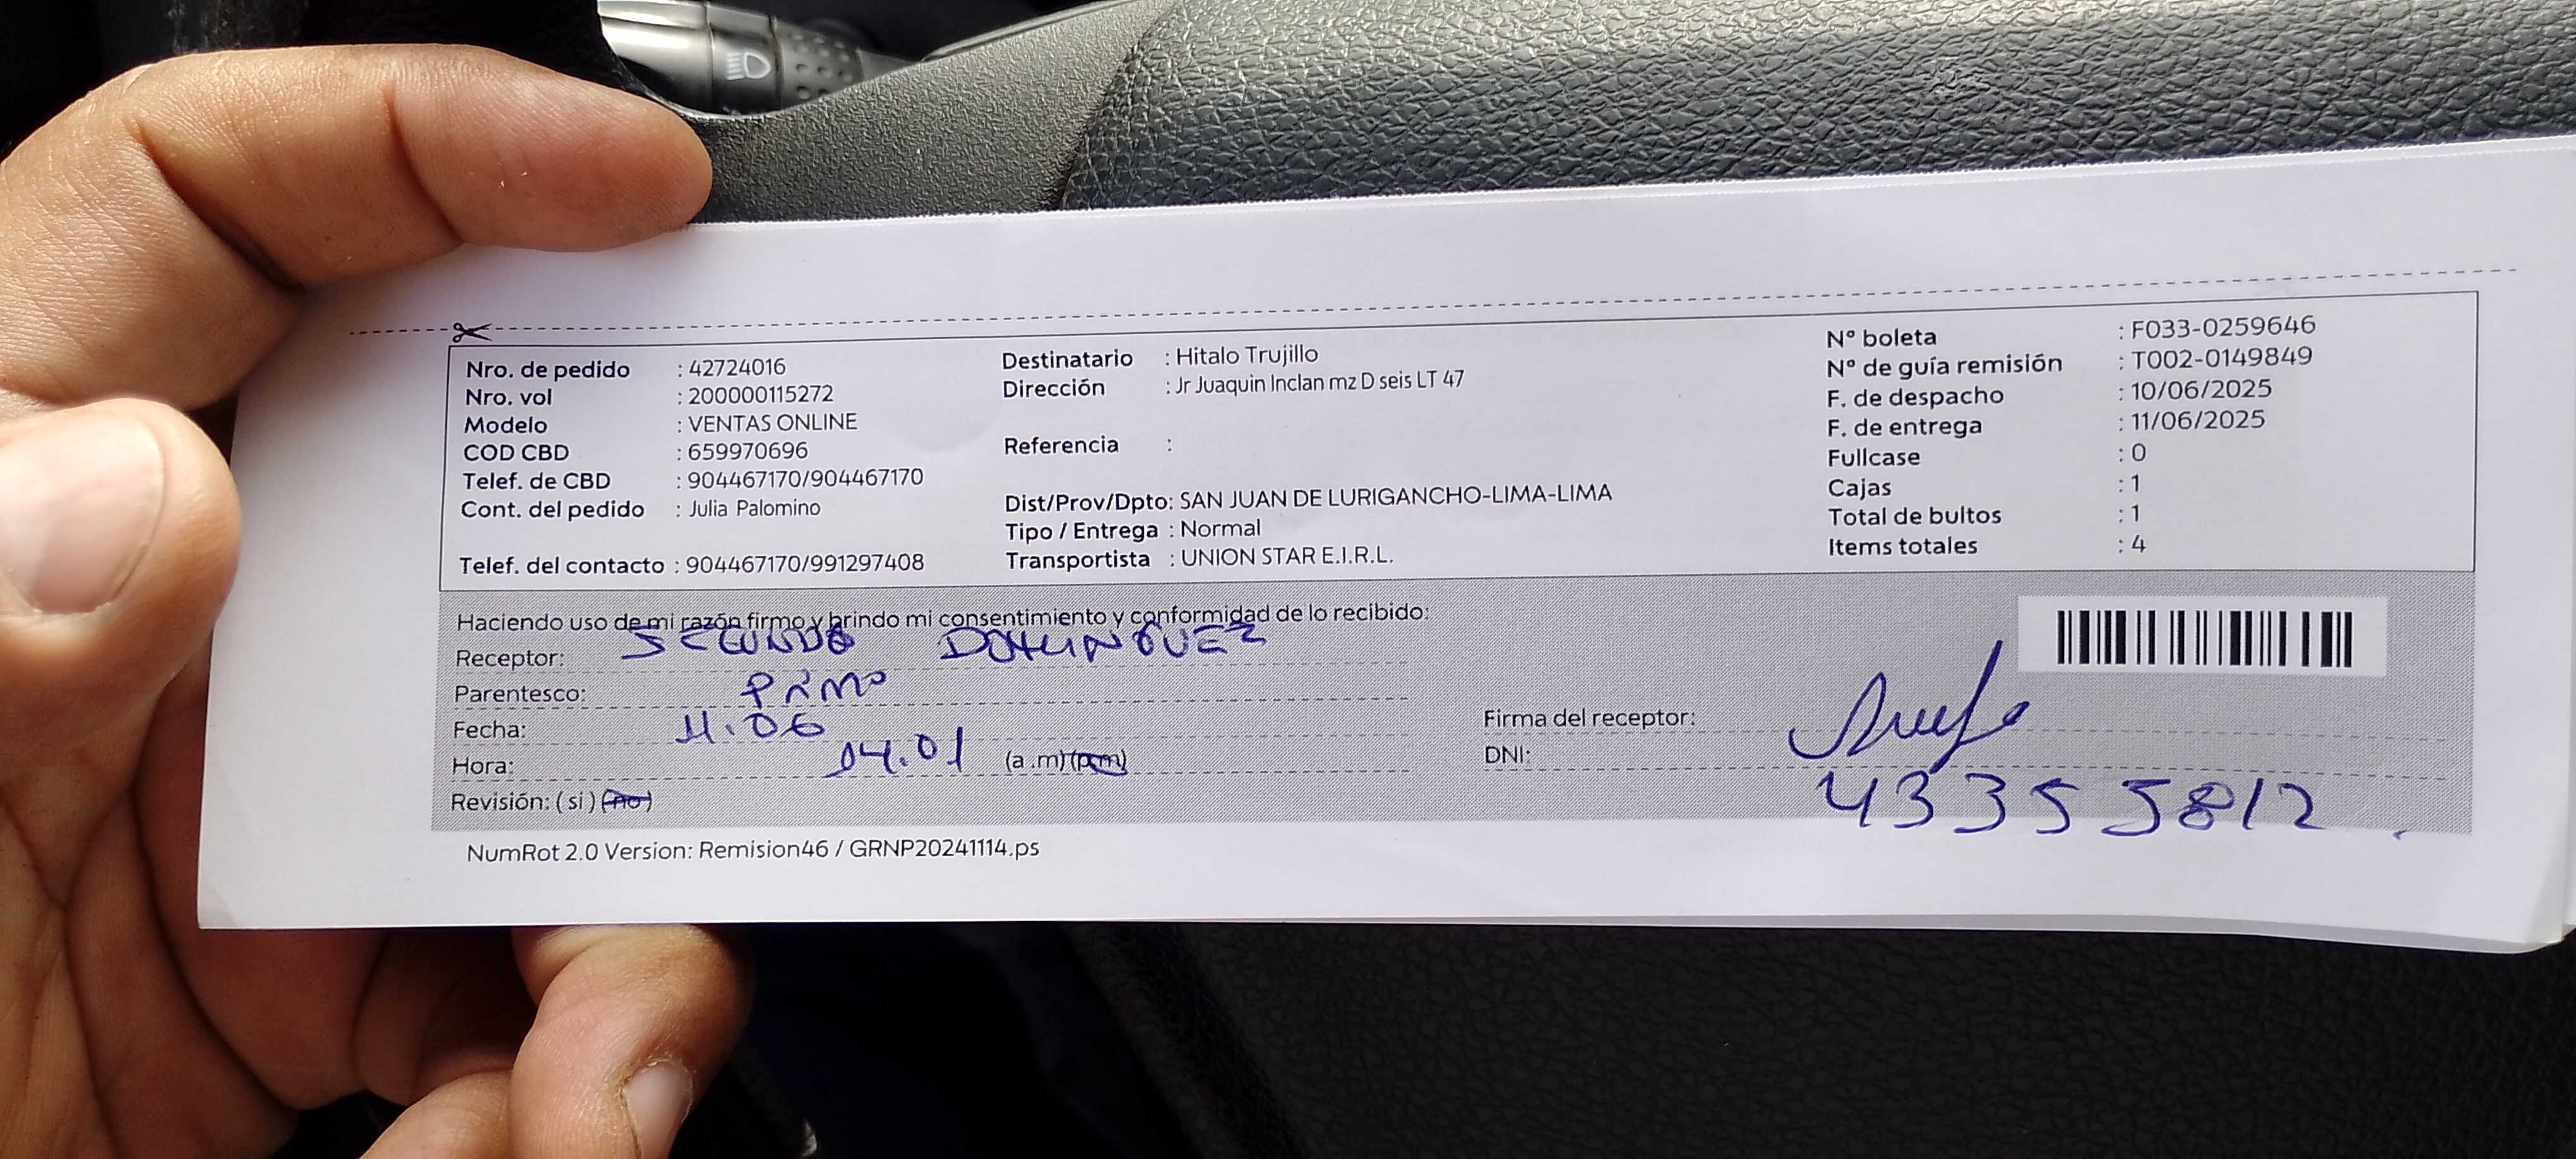 Nro. de pedido : 42724016
Nro. vol : 200000115272
Modelo : VENTAS ONLINE
COD CBD : 659970696
Telef. de CBD : 904467170/904467170
Cont. del pedido : Julia Palomino
Telef. del contacto : 904467170/991297408
Destinatario : Hitalo Trujillo
Dirección : Jr Juaquin Inclan mz D seis LT 47
Referencia :
Dist/Prov/Dpto: SAN JUAN DE LURIGANCHO-LIMA-LIMA
Tipo / Entrega : Normal
Transportista : UNION STAR E.I.R.L.
Nº boleta : F033-0259646
Nº de guía remisión : T002-0149849
F. de despacho : 10/06/2025
F. de entrega : 11/06/2025
Fullcase : 0
Cajas : 1
Total de bultos : 1
Items totales : 4
Haciendo uso de mi razón firmo y brindo mi consentimiento y conformidad de lo recibido:
Receptor: SEGUNDO DOMINGUEZ
Parentesco: Primo
Fecha: 11.06
Hora: 04.01 (a .m)(p.m)
Revisión: ( si ) (no)
Firma del receptor:
DNI: 43355812
NumRot 2.0 Version: Remision46 / GRNP20241114.ps